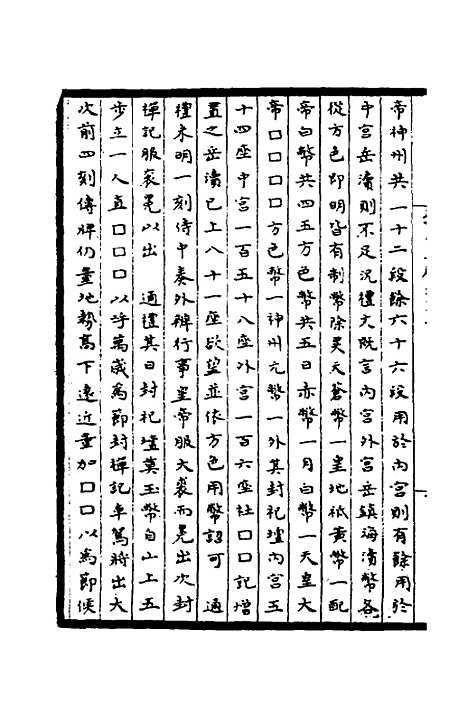 帝神州共一十二段餘六十六段用於內宫則有餘用於
中宫岳瀆則不足況禮文既言內宫外宫岳鎮海瀆幣各
從方色即明皆有制幣除昊天蒼幣一皇地祇黄幣一配
帝白幣共四五方色幣共五日赤幣一月白幣一天皇大
帝口口口口方色幣一神州元幣一外其封祀壇內宫五
十四座中宫一百五十八座外宫一百六座社口口記增
置之岳瀆已上八十一座欲望並依方色用幣詔可　通
禮未明一刻侍中奏外辨行事皇帝服大裘而冕出次封
禪記服衮冕以出　通禮其日封祀壇奠玉幣自山上五
步立一人直口口口以呼萬歲為節封禪記車駕將出大
次前四刻傳牌仍量地勢高下遠近量加口口以為節候